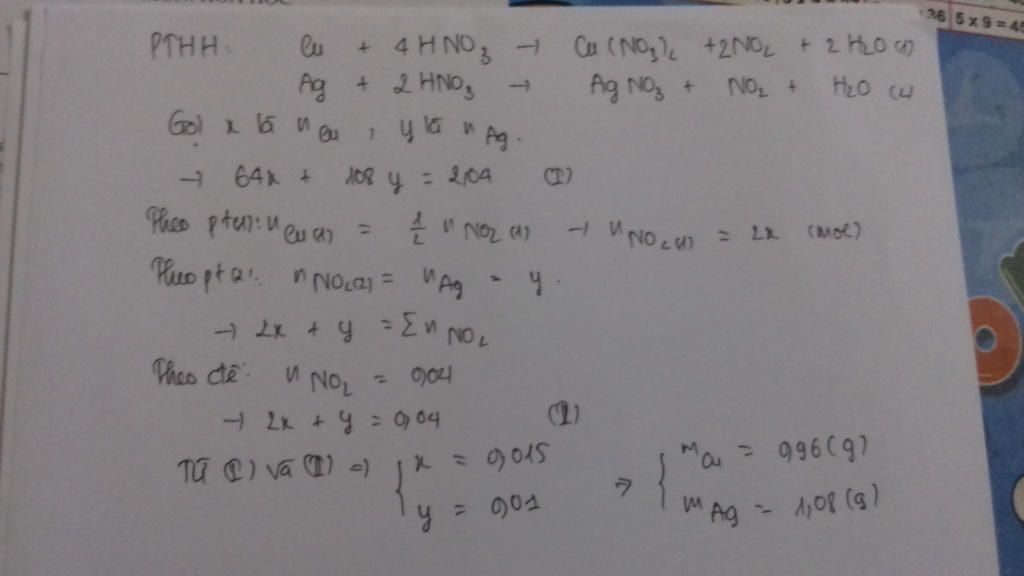 36 5 x 9 = 45
PTHH: Cu + 4 HNO3 → Cu(NO3)2 + 2NO2 + 2 H2O (1)
Ag + 2 HNO3 → AgNO3 + NO2 + H2O (2)
Gọi x là n Cu , y là n Ag.
→ 64x + 108 y = 2,04 (I)
Theo pt(1): n Cu(1) = 1/2 n NO2(1) → n NO2(1) = 2x (mol)
Theo pt 2: n NO2(2) = n Ag = y.
→ 2x + y = Σ n NO2
Theo đề: n NO2 = 0,04
→ 2x + y = 0,04 (II)
Từ (I) và (II) ⇒ { x = 0,015 ⇒ { m Cu = 0,96 (g)
y = 0,01 m Ag = 1,08 (g)